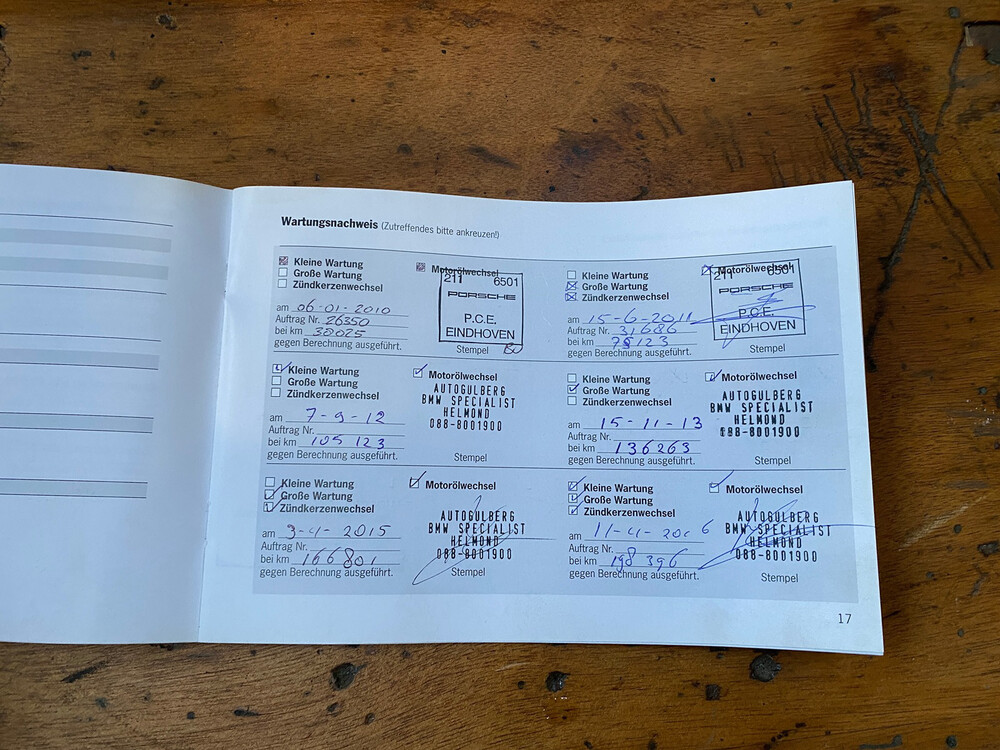 Wartungsnachweis (Zutreffendes bitte ankreuzen!)
Kleine Wartung
Große Wartung
Zündkerzenwechsel
Motorölwechsel
am 06-01-2010
Auftrag Nr. 26350
bei km 38025
gegen Berechnung ausgeführt.
211 6501
PORSCHE
P.C.E.
EINDHOVEN
Stempel
Kleine Wartung
Große Wartung
Zündkerzenwechsel
Motorölwechsel
am 15-6-2011
Auftrag Nr. 31686
bei km 75123
gegen Berechnung ausgeführt.
211 6501
PORSCHE
P.C.E.
EINDHOVEN
Stempel
Kleine Wartung
Große Wartung
Zündkerzenwechsel
Motorölwechsel
am 7-9-12
Auftrag Nr.
bei km 105 123
gegen Berechnung ausgeführt.
AUTOGULBERG
BMW SPECIALIST
HELMOND
088-8001900
Stempel
Kleine Wartung
Große Wartung
Zündkerzenwechsel
Motorölwechsel
am 15-11-13
Auftrag Nr.
bei km 136263
gegen Berechnung ausgeführt.
AUTOGULBERG
BMW SPECIALIST
HELMOND
088-8001900
Stempel
Kleine Wartung
Große Wartung
Zündkerzenwechsel
Motorölwechsel
am 3-4-2015
Auftrag Nr.
bei km 166801
gegen Berechnung ausgeführt.
AUTOGULBERG
BMW SPECIALIST
HELMOND
088-8001900
Stempel
Kleine Wartung
Große Wartung
Zündkerzenwechsel
Motorölwechsel
am 11-4-2016
Auftrag Nr.
bei km 198 396
gegen Berechnung ausgeführt.
AUTOGULBERG
BMW SPECIALIST
HELMOND
088-8001900
Stempel
17